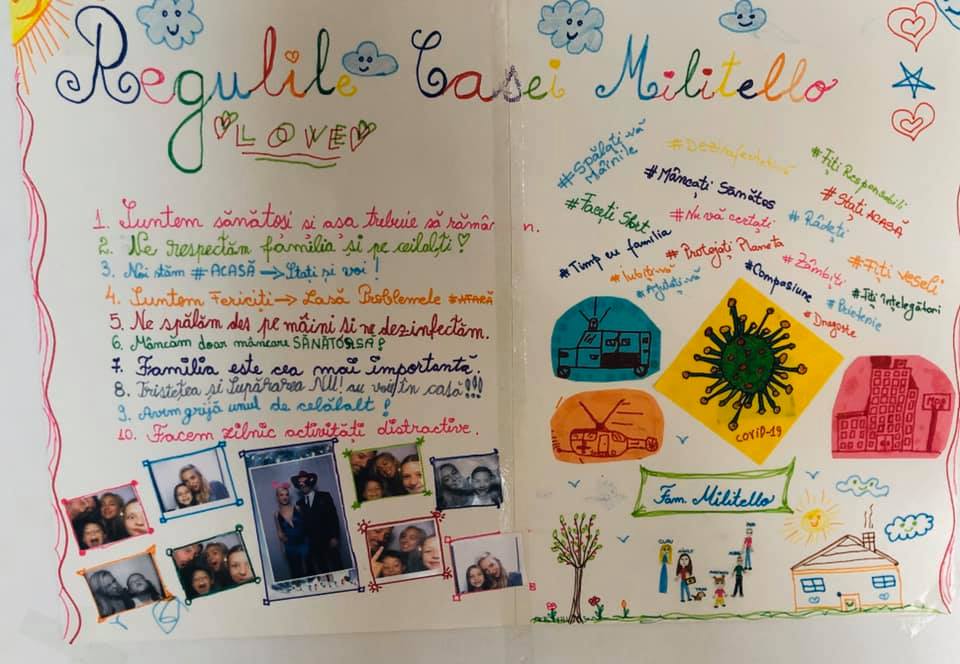 Regulile Casei Militello
LOVE
1. Suntem sănătoși și așa trebuie să rămânem.
2. Ne respectăm familia și pe ceilalți
3. Noi stăm #ACASĂ → Stați și voi!
4. Suntem Fericiți → Lasă Problemele #AFARĂ
5. Ne spălăm des pe mâini și ne dezinfectăm.
6. Mâncăm doar mâncare SĂNĂTOASĂ!
7. Familia este cea mai importantă.
8. Tristețea și Supărarea NU! au voie în casă!!!
9. Avem grijă unul de celălalt!
10. Facem zilnic activități distractive.
#Spălați vă
Mâinile
#Dezinfectați vă
#Fiți Responsabili
#Mâncați Sănătos
#Stați ACASĂ
#Faceți Sport
#Nu vă certați
#Râdeți
#Timp cu familia
#Protejați Planeta
#Zâmbiți
#Fiți veseli
#Iubiți vă
#Ajutați vă
#Compasiune
#Fiți înțelegători
#Prietenie
#Dragoste
COVID-19
Fam. Militello